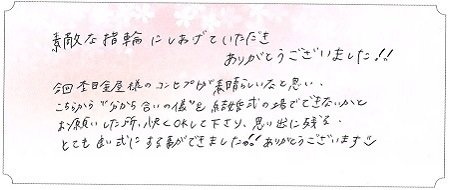 素敵な指輪にしあげていただき
ありがとうございました!!
今回杢目金屋様のコンセプトが素晴らしいなと思い、
こちらから"分かち合いの儀"を結婚式の場でできないかと
お願いした所、快くOKして下さり、思い出に残る、
とても良い式にする事ができました!! ありがとうございます